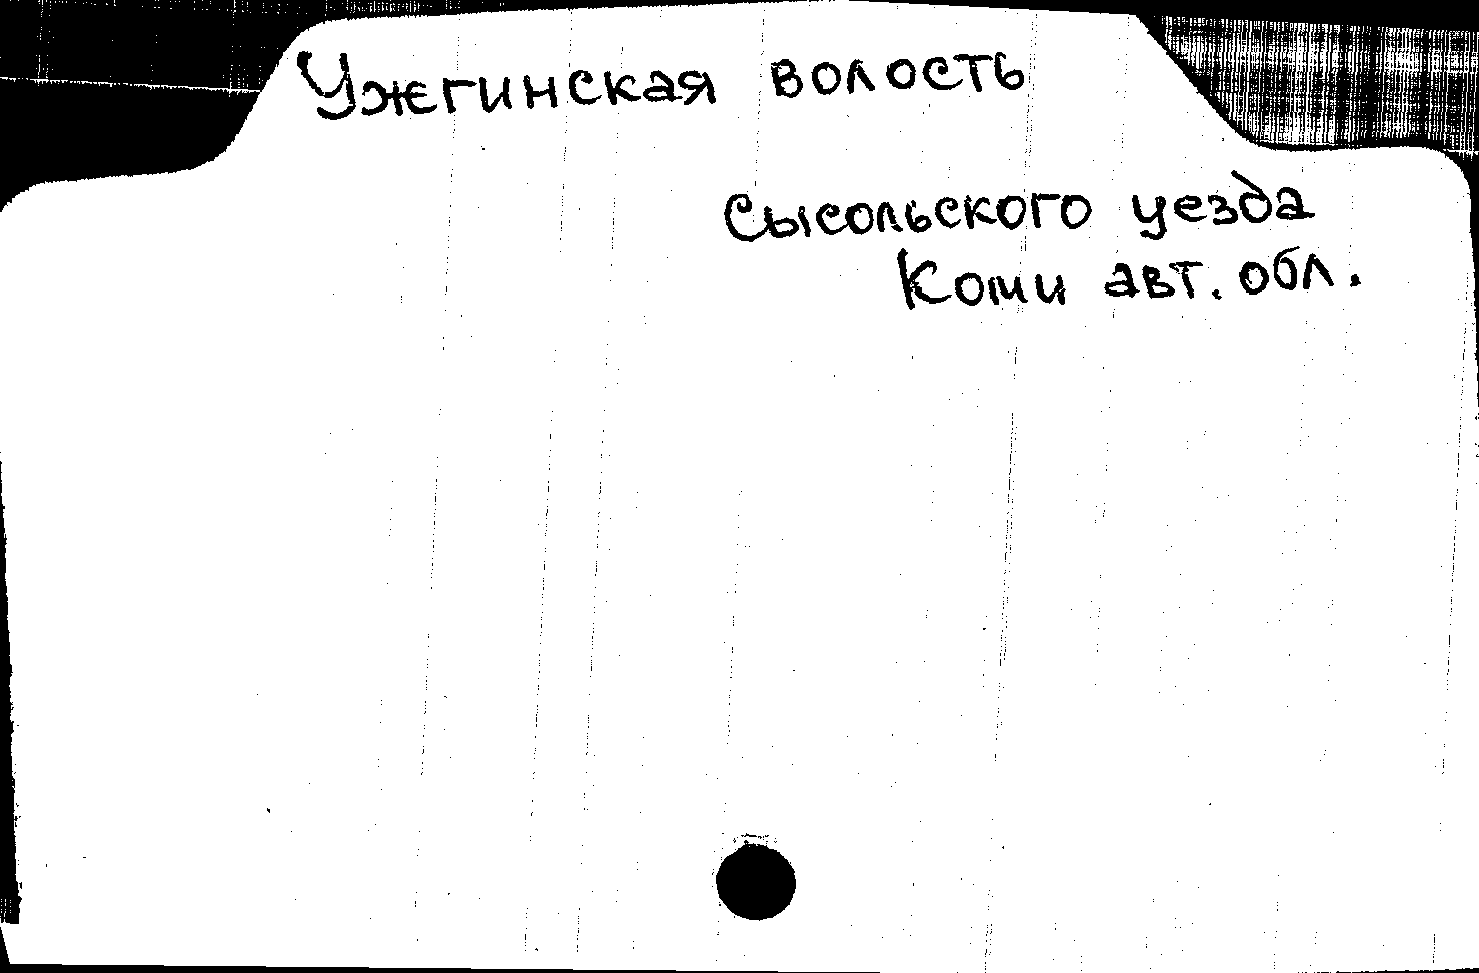 Ужгинская волость
Сысольского уезда
Коми авт. обл.